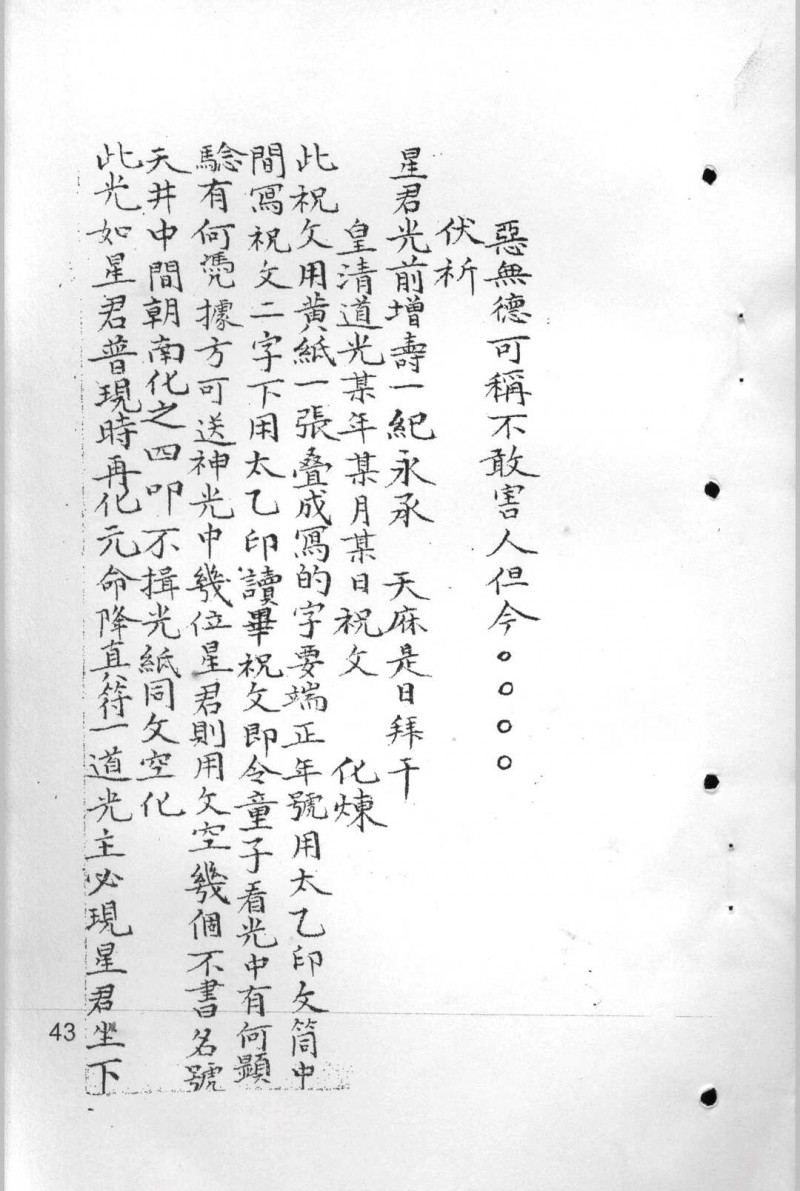 惡無德可稱不敢害人但今○○○○
伏祈
星君光前增壽一紀永承 天庥是日拜干
皇清道光某年某月某日祝文 化煉
此祝文用黄紙一張叠成寫的字要端正年號用太乙印文筒中
間寫祝文二字下用太乙印讀畢祝文即令童子看光中有何顯
驗有何憑據方可送神光中幾位星君則用文空幾個不書名號
天井中間朝南化之四叩不揖光紙同文空化
此光如星君普現時再化元命降真符一道光主必現星君坐下
43